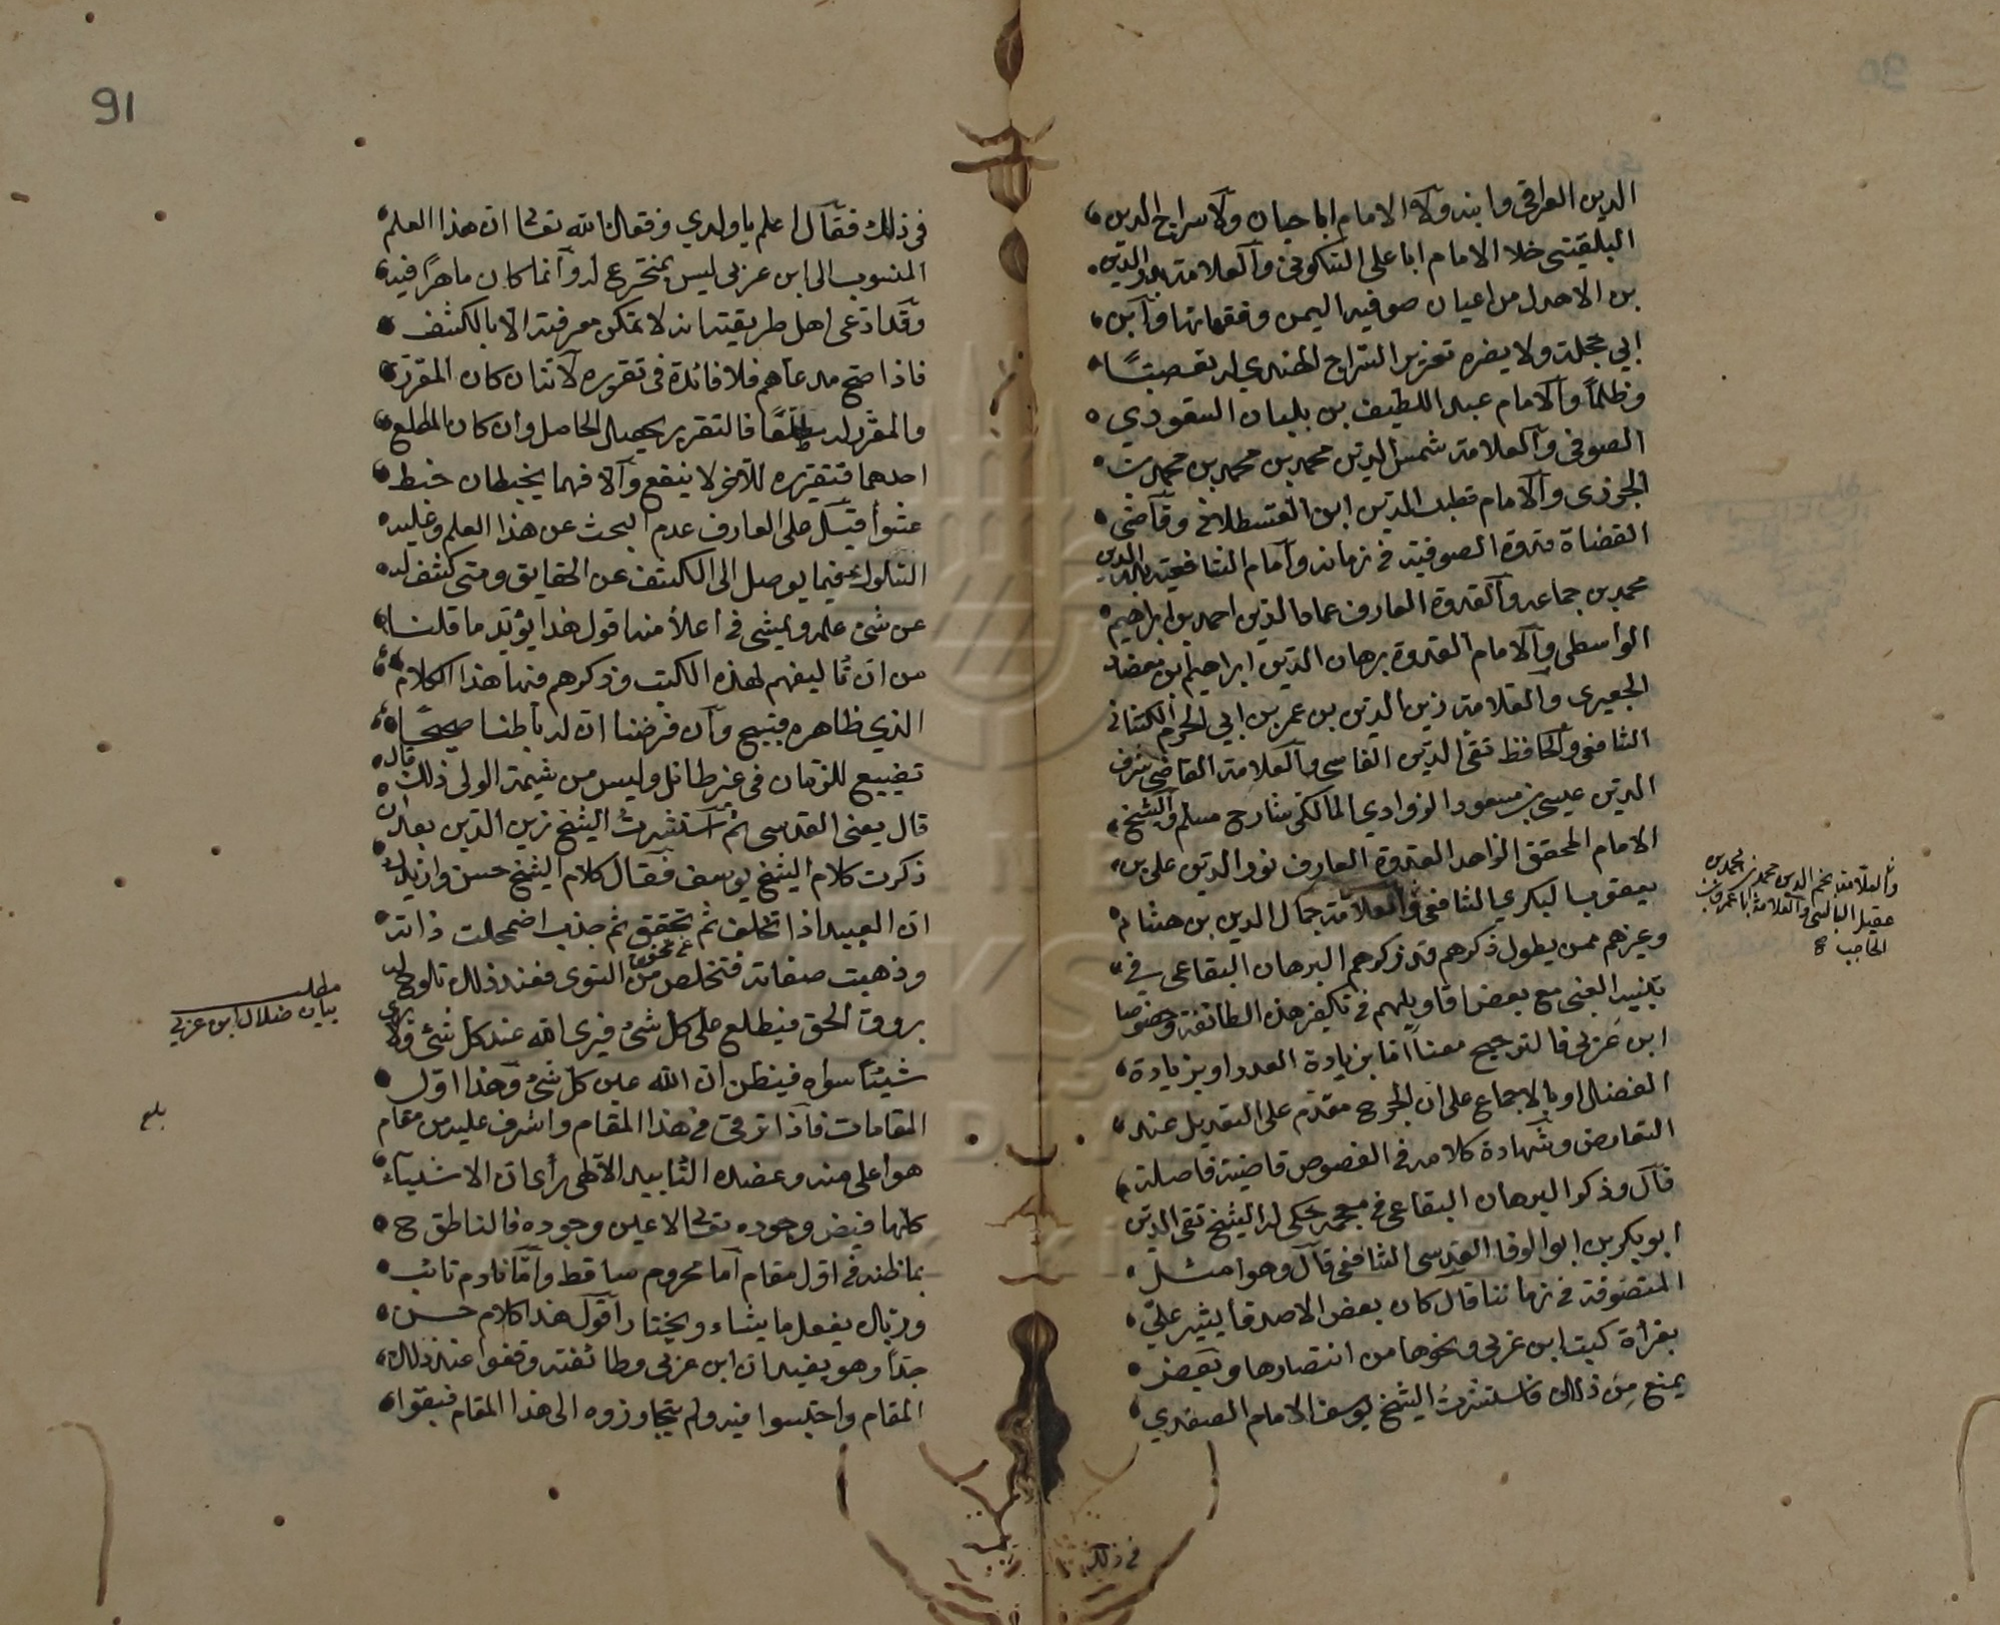 الدين العراقي وابنه ولا الامام ابا حيان ولا سراج الدين
البلقيني خلا الامام ابا على السكوني والعلامة بدر الدين
بن الاهدل من اعيان صوفية اليمن وفقهائها وابن
ابي حجلة ولا يضره تعزير السراج الهندي له تعصبًا
وظلمًا والامام عبد اللطيف بن بلبان السعودي
الصوفي والعلامة شمس الدين محمد بن محمد بن محمد بن
الجوزى والامام قطب الدين ابن القسطلاني وقاضي
القضاة قدوة الصوفية في زمانه وامام الشافعية بدر الدين
محمد بن جماعه والقدوة العارف عماد الدين احمد بن ابراهيم
الواسطى والامام القدوة برهان الدين ابراهيم بن معضاد
الجعبرى والعلامة زين الدين بن عمر بن ابي الحرم الكتاني
الشافعي والحافظ تقي الدين الفاسى والعلامة القاضي شرف
الدين عيسى بن مسعود الزواوي المالكي شارح مسلم والشيخ
الامام المحقق الزاهد القدوة العارف نور الدين على بن
يعقوب البكري الشافعي والعلامة جمال الدين بن هشام
وغيرهم ممن يطول ذكرهم قد ذكرهم البرهان البقاعي في
تنبيه الغبى مع بعض اقاويلهم في تكفير هذه الطائفة وخصوصا
ابن عربي فالترجيح معنا اما بزيادة العدد او بزيادة
الفضل او بالاجماع على ان الجرح مقدم على التعديل عند
التعارض وشهادة كلامه في الفصوص قاضية فاصلة
قال وذكر البرهان البقاعي في معجمه حكى لي الشيخ تقي الدين
ابو بكر بن ابو الوفا القدسي الشافعي قال وهو امثل
المتصوفة في زماننا قال كان بعض الاصدقا يشير علي
بقرأة كتب ابن عربي ونحوها من انتصارها وبعض
يمنع من ذلك فاستشرت الشيخ يوسف الامام الصفدي
في ذلك
والعلامة نجم الدين محمد بن محمد بن
عقيل البالسى والعلامة ابا عمرو بن
الحاجب
91
في ذلك فقال اعلم يا ولدي وفقك الله تعالى ان هذا العلم
المنسوب الى ابن عربي ليس بمخترع له وانما كان ماهرًا فيه
وقد ادعى اهل طريقته انه لا تمكن معرفته الا بالكشف
فاذا صح مدعاهم فلا فائدة في تقريره لانه ان كان المقرر
والمقرر له فالتقرير تحصيل الحاصل وان كان المطلع
احدهما فتقريره للآخر لا ينفع والا فهما يخبطان خبط
عشوا فسبيل العارف عدم البحث عن هذا العلم وعليه
السلوك فيما يوصل الى الكشف عن الحقايق ومتى كشف له
عن شئ علمه ومشى في اعلا منه اقول هذا يؤيد ما قلنا
من ان تأليفهم لهذه الكتب وذكرهم فيها هذا الكلام
الذي ظاهره قبيح وان فرضنا ان له باطنا صحيحًا
تضييع للزمان في غير طائل وليس من شيمة الولى ذلك قال
قال يعنى القدسى ثم استشرت الشيخ زين الدين بعد ان
ذكرت كلام الشيخ يوسف فقال كلام الشيخ حسن وازيدك
ان العبد اذا تخلق ثم تحقق ثم جذب اضمحلت ذاته
وذهبت صفاته فتخلص من السوى فعند ذلك تلوح له
بروق الحق فيطلع على كل شئ فيرى الله عند كل شئ ولا يرى
شيئًا سواه فيظن ان الله عين كل شئ وهذا اول
المقامات فاذا ترقى في هذا المقام واشرف عليه من مقام
هو اعلى منه وعضده التأييد الالهى رأى ان الاشياء
كلها فيض وجوده تعالى لا عين وجوده فالناطق ح
بما ظنه في اول مقام اما محروم ساقط واما نادم تائب
وربك يفعل ما يشاء ويختار اقول هذا كلام حسن
جدًا وهو يفيد ان ابن عربي وطائفته وقفوا عند ذلك
المقام واحتبسوا فيه ولم يتجاوزوه الى هذا المقام فبقوا
مطلب
بيان ضلال ابن عربي
بلغ